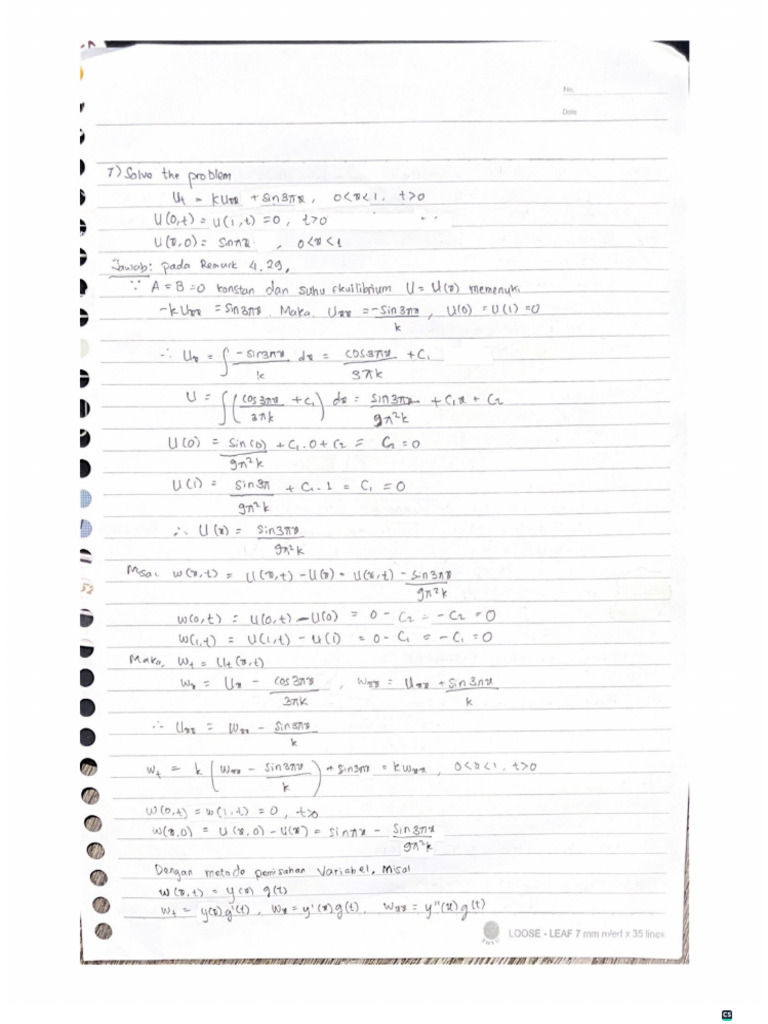 No.
Date
7) Solve the problem
Ut = kUxx + sin3πx, 0<x<1, t>0
U(0,t) = U(1,t) = 0, t>0
U(x,0) = sinπx, 0<x<1
Jawab: pada Remark 4.29,
∵ A = B = 0 konstan dan suhu ekuilibrium U = U(x) memenuhi
-kUxx = sin3πx. Maka, Uxx = -sin3πx/k, U(0) = U(1) = 0
∴ Ux = ∫ -sin3πx/k dx = cos3πx/3πk + C₁
U = ∫ (cos3πx/3πk + C₁) dx = sin3πx/9π²k + C₁x + C₂
U(0) = sin(0)/9π²k + C₁.0 + C₂ = C₂ = 0
U(1) = sin3π/9π²k + C₁.1 = C₁ = 0
∴ U(x) = sin3πx/9π²k
Misal w(x,t) = U(x,t) - U(x) = U(x,t) - sin3πx/9π²k
w(0,t) = U(0,t) - U(0) = 0 - C₂ = -C₂ = 0
w(1,t) = U(1,t) - U(1) = 0 - C₁ = -C₁ = 0
Maka, wt = Ut(x,t)
wx = Ux - cos3πx/3πk, wxx = Uxx + sin3πx/k
∴ Uxx = wxx - sin3πx/k
wt = k(wxx - sin3πx/k) + sin3πx = kwxx, 0<x<1, t>0
w(0,t) = w(1,t) = 0, t>0
w(x,0) = U(x,0) - U(x) = sinπx - sin3πx/9π²k
Dengan metode pemisahan variabel, misal
w(x,t) = y(x) g(t)
wt = y(x)g'(t), wx = y'(x)g(t), wxx = y''(x)g(t)
LOOSE - LEAF 7 mm ruled x 35 lines
CS